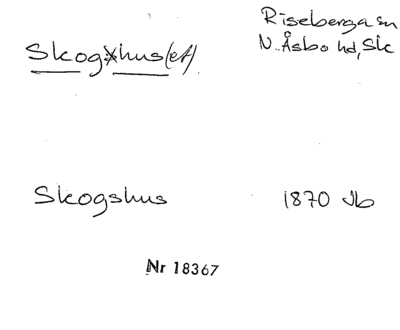 Riseberga sn
Skogshus(et) N. Åsbo hd, Sk
Skogshus 1870 Jb
Nr 18367